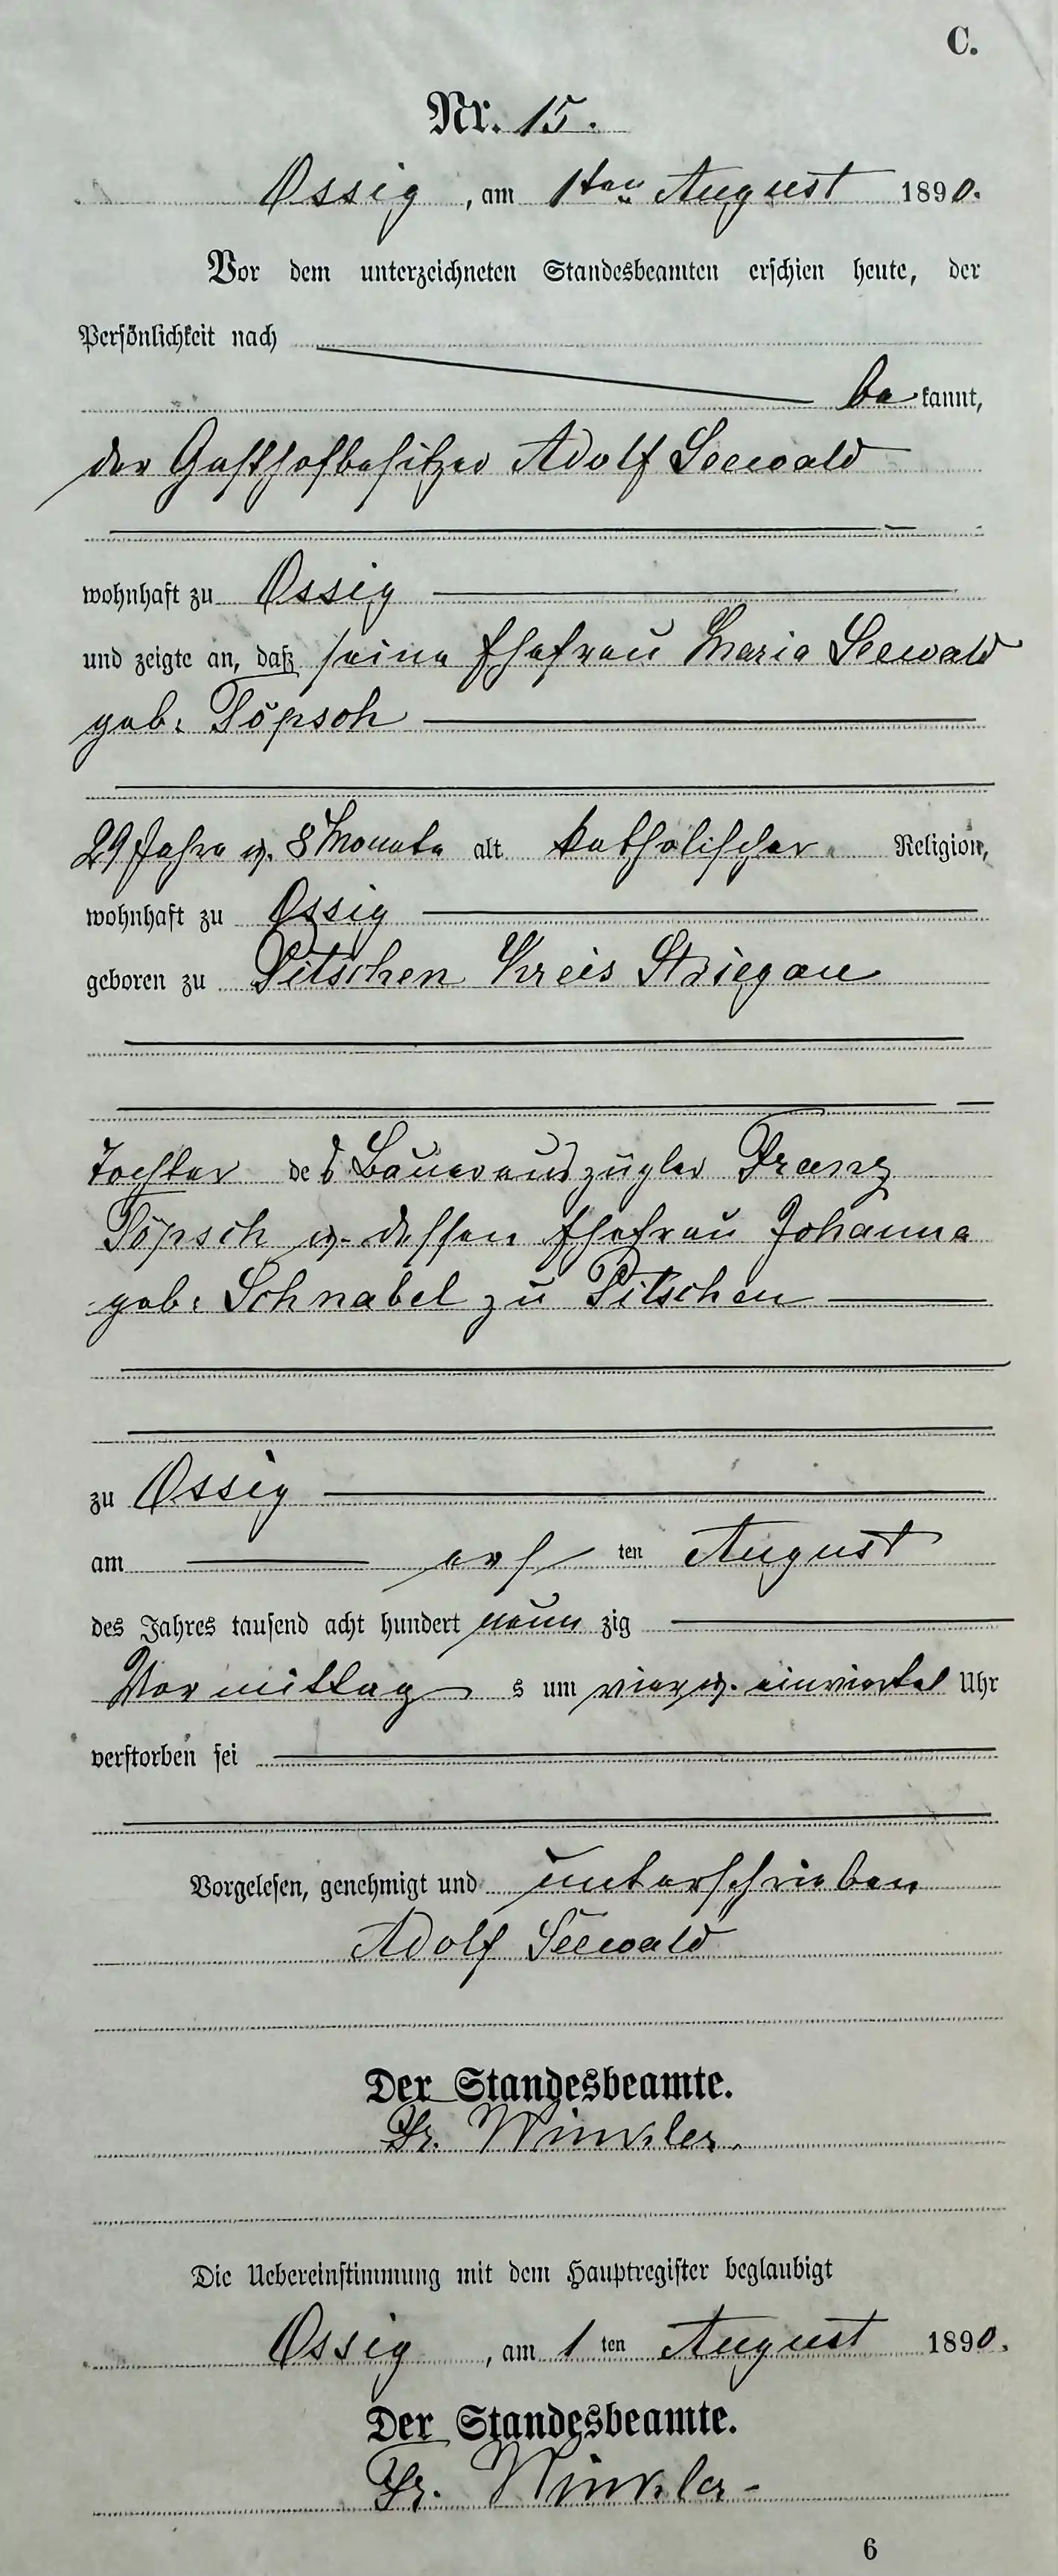 C.
Nr. 15.
Ossig, am 1ten August 1890.
Vor dem unterzeichneten Standesbeamten erschien heute, der
Persönlichkeit nach
bekannt,
der Gasthofbesitzer Adolf Seewald
wohnhaft zu Ossig
und zeigte an, daß seine Ehefrau Maria Seewald
geb. Töpsch
29 Jahre u. 8 Monate alt katholischer Religion,
wohnhaft zu Ossig
geboren zu Pitschen Kreis Striegau
Tochter des Bauerauszügler Franz
Töpsch u. dessen Ehefrau Johanna
geb. Schnabel zu Pitschen
zu Ossig
am ersten August
des Jahres tausend acht hundert neunzig
Vormittags um vier u. einviertel Uhr
verstorben sei
Vorgelesen, genehmigt und unterschrieben
Adolf Seewald
Der Standesbeamte.
Fr. Winkler.
Die Uebereinstimmung mit dem Hauptregister beglaubigt
Ossig, am 1ten August 1890.
Der Standesbeamte.
Fr. Winkler
6